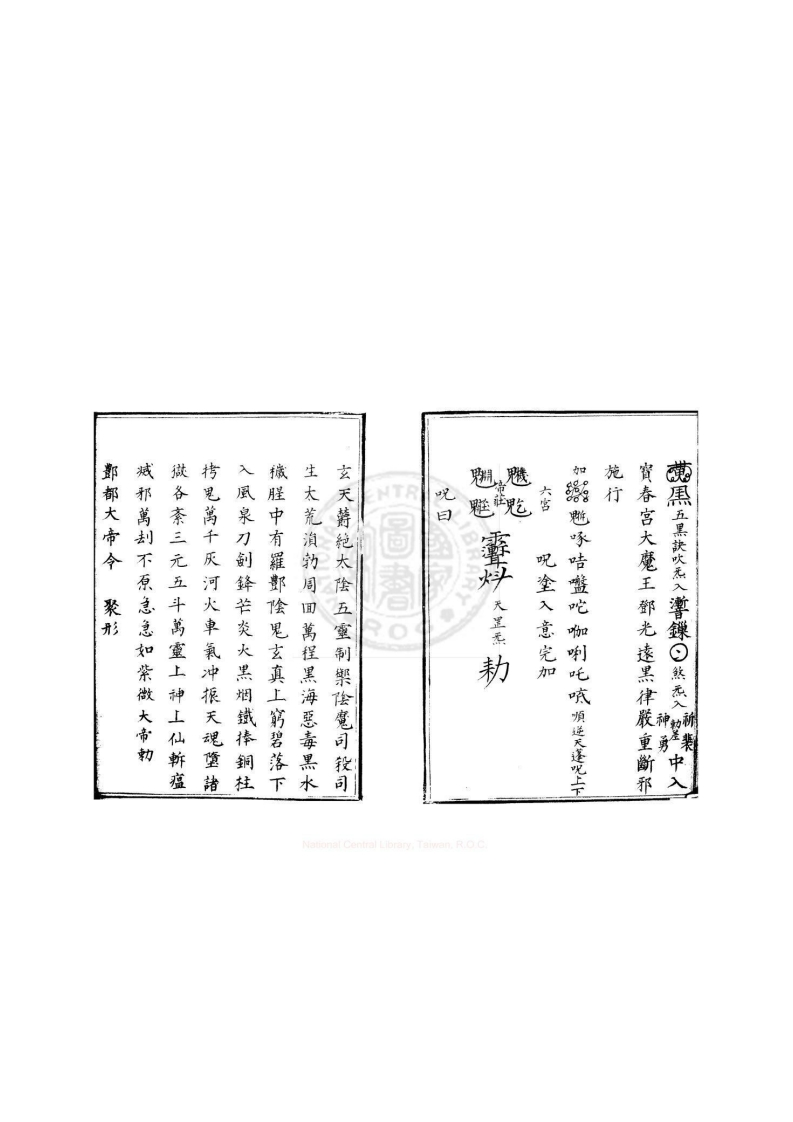 黑 五黑訣吹炁入 煞炁入 神勇 中入
寶春宮大魔王鄧光遠黑律嚴重斷邪
施行
加 啄咭囓咜㗎唎吒唬 順逆天蓬呪上下
六宮 呪塗入意完加
天罡炁 勑
呪曰
玄天欝絶太陰五靈制禦陰魔司殺司
生太荒湏勃周回萬程黑海惡毒黑水
穢腥中有羅酆陰鬼玄真上窮碧落下
入風泉刀劍鋒芒炎火黑烟鐵捧銅柱
拷鬼萬千灰河火車氣冲振天魂墮諸
獄各柰三元五斗萬靈上神上仙斬瘟
滅邪萬刦不原急急如紫微大帝勅
酆都大帝令 聚形
National Central Library, Taiwan, R.O.C.